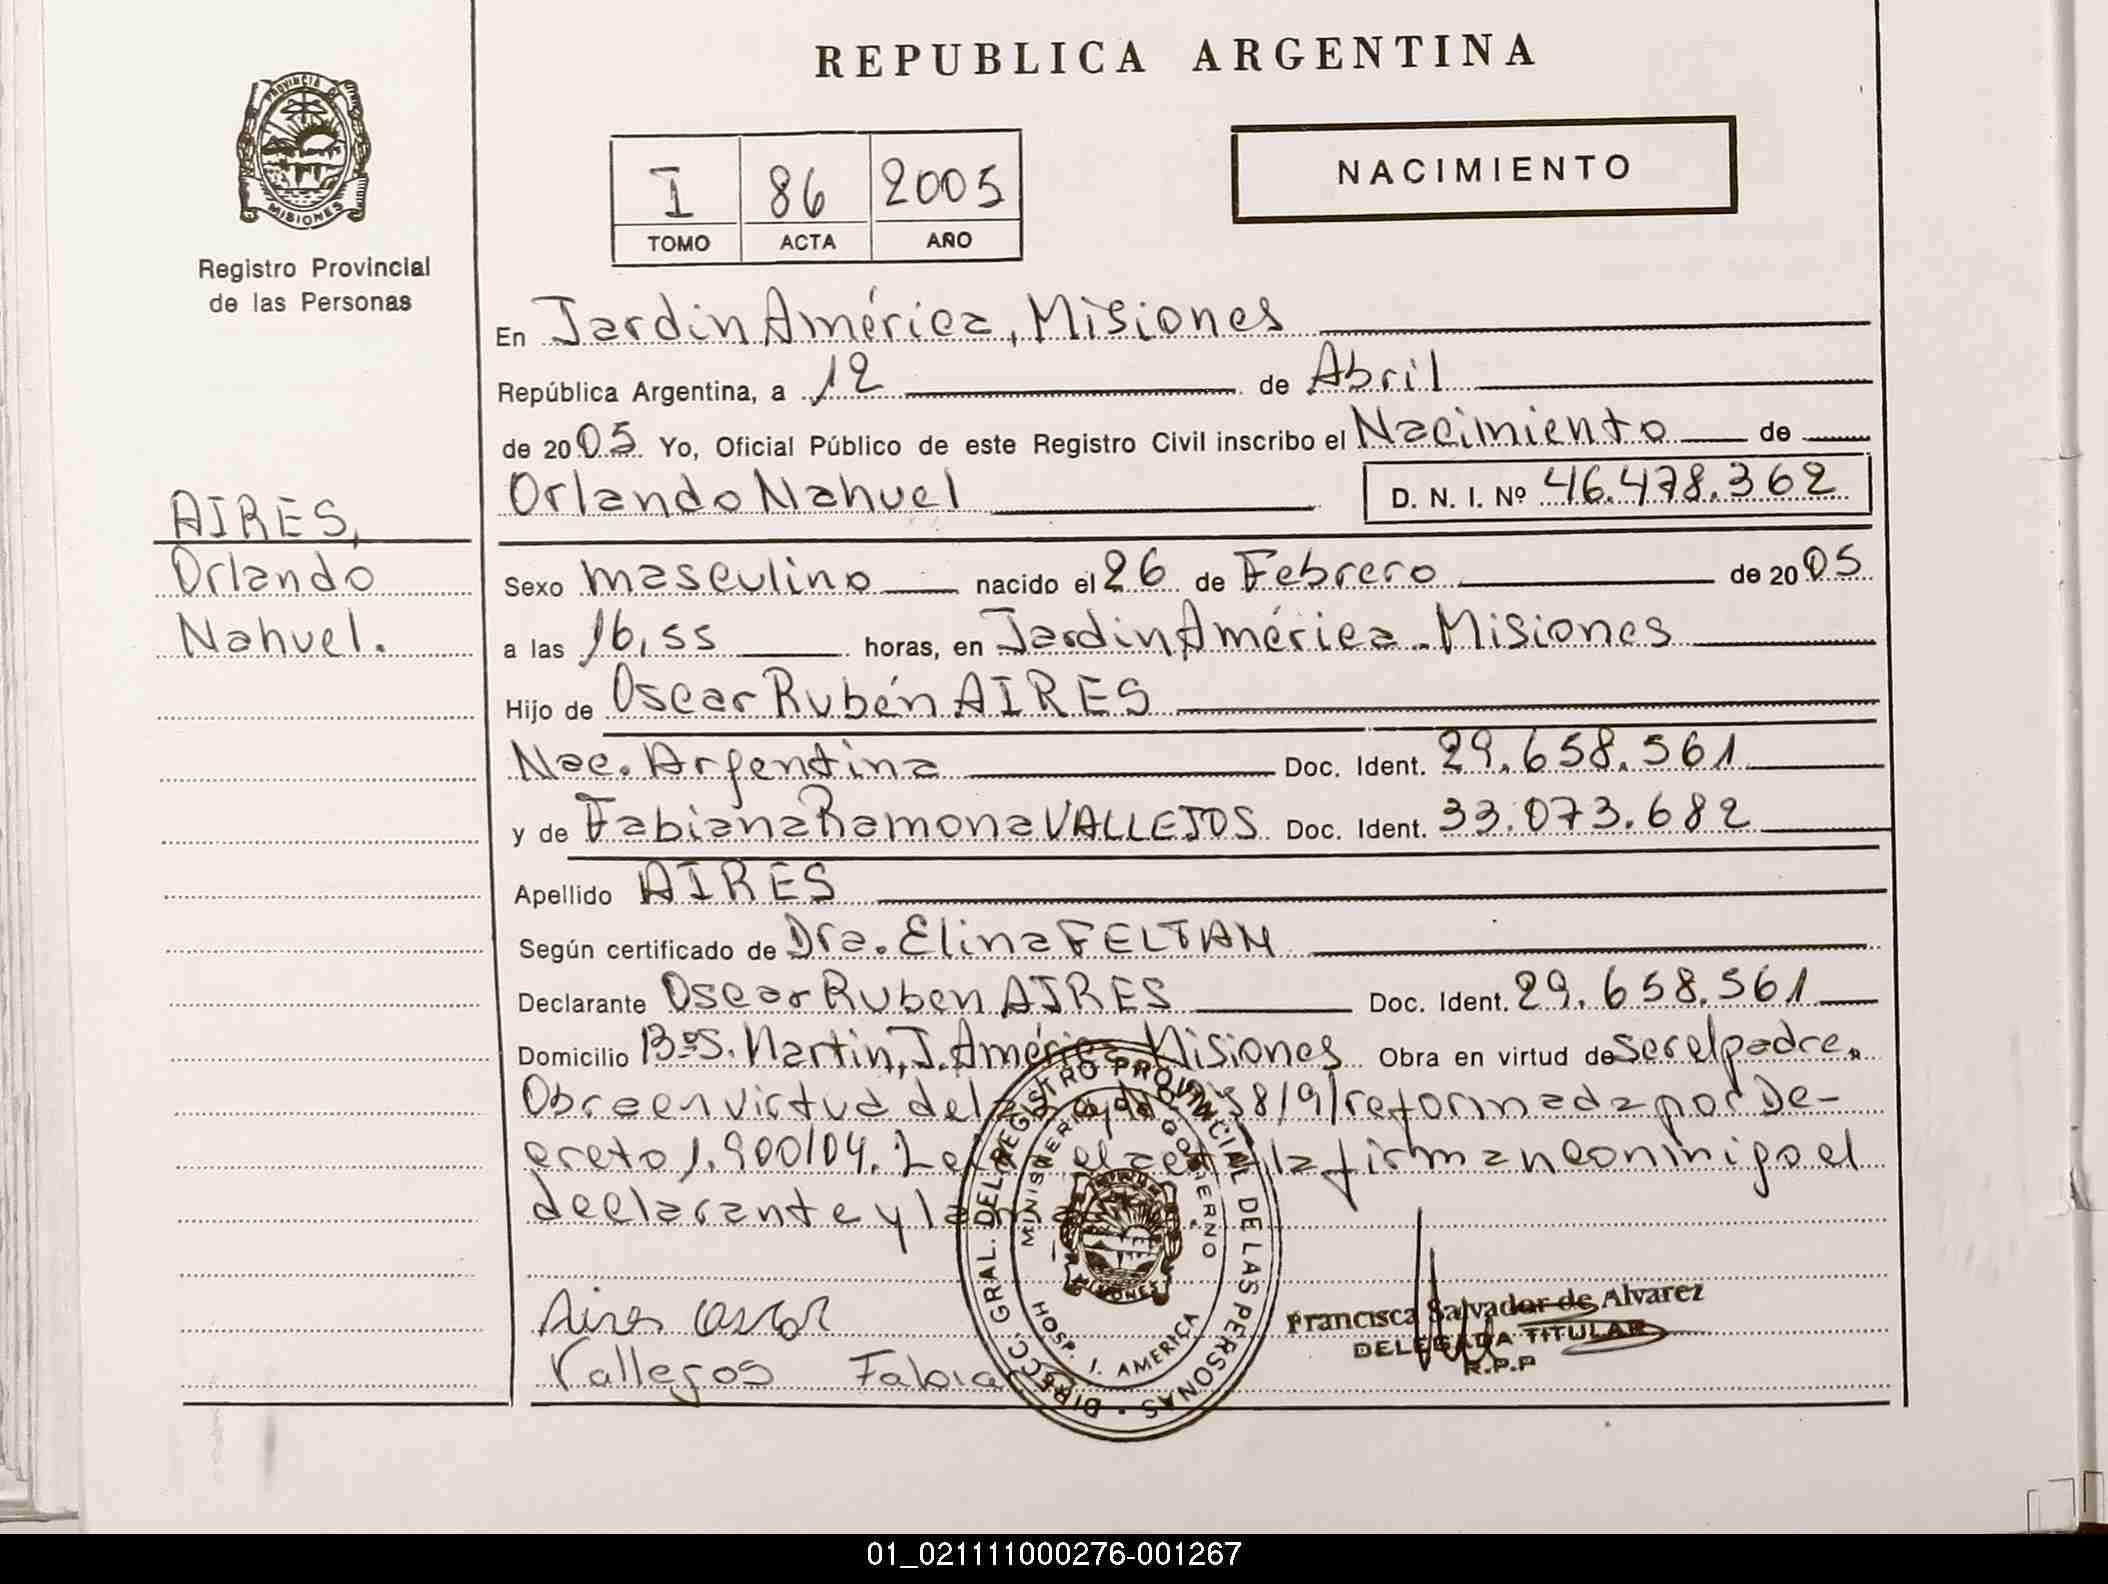 REPUBLICA ARGENTINA
PROVINCIA DE
MISIONES
Registro Provincial
de las Personas
I 86 2005
TOMO ACTA AÑO
NACIMIENTO
En Jardin América, Misiones
República Argentina, a 12 de Abril
de 2005 Yo, Oficial Público de este Registro Civil inscribo el Nacimiento de
Orlando Nahuel D. N. I. Nº 46.478.362
AIRES,
Orlando
Nahuel.
Sexo masculino nacido el 26 de Febrero de 2005
a las 16,55 horas, en Jardin América - Misiones
Hijo de Oscar Rubén AIRES
Nac. Argentina Doc. Ident. 29.658.561
y de Fabiana Ramona VALLEJOS Doc. Ident. 33.073.682
Apellido AIRES
Según certificado de Dra. Elina FELTAN
Declarante Oscar Ruben AIRES Doc. Ident. 29.658.561
Domicilio Bº S. Martin, J. América Misiones Obra en virtud de ser el padre.
Obra en virtud del reformada por De-
creto 1.900/04. la firman conmigo el
declarante y la
Aires Oscar
Vallejos Fabia
DIRECC. GRAL. DEL REGISTRO PROVINCIAL DE LAS PERSONAS
MINISTERIO DE GOBIERNO
HOSP. J. AMERICA
MISIONES
Francisca Salvador de Alvarez
DELEGADA TITULAR
R.P.P
01_021111000276-001267